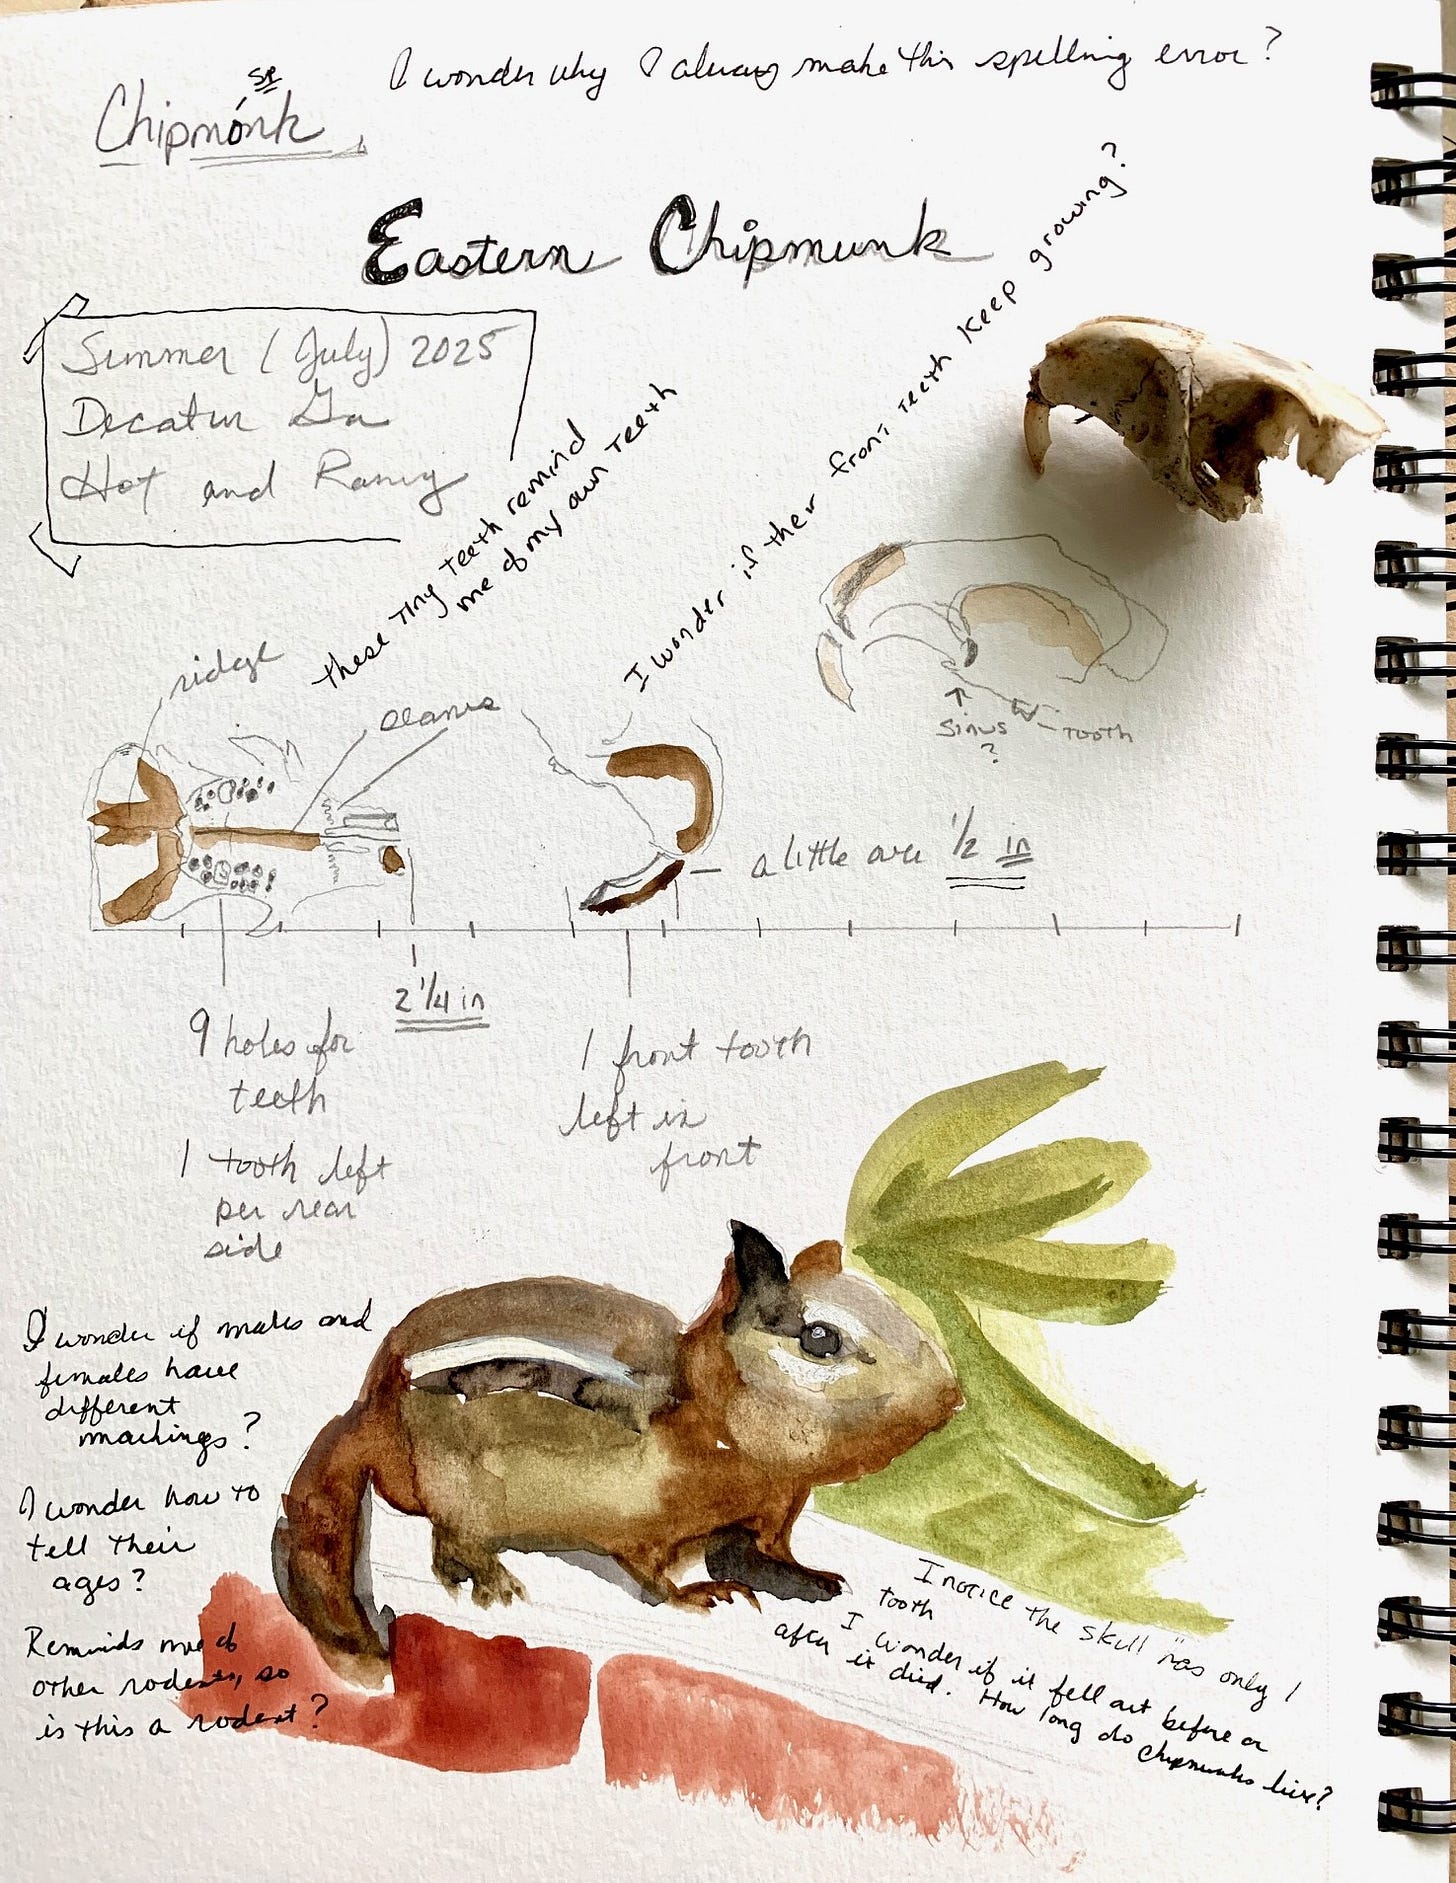 I wonder why I always make this spelling error?
sp
Chipmonk
Eastern Chipmunk
Summer (July) 2025
Decatur Ga
Hot and Rainy
these tiny teeth remind
me of my own teeth
I wonder if ther front teeth keep growing?
ridge
seams
sinus
?
tooth
a little over 1/2 in
2 1/4 in
9 holes for
teeth
1 tooth left
per rear
side
1 front tooth
left in
front
I wonder if males and
females have
different
markings?
I wonder how to
tell their
ages?
Reminds me of
other rodents, so
is this a rodent?
I notice the skull has only 1
tooth
I wonder if it fell out before or
after it died. How long do
Chipmunks live?